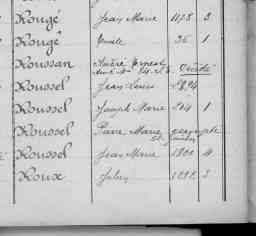 Rougé Jean Marie 1178 3
Rougé Emile 36 1
Roussan André Ernest
Décédé
Roussel Jean Louis 1894
Roussel Joseph Marie 504 1
Roussel Pierre Marie
Roussel Jean Marie 1800 4
Roux Jules 3